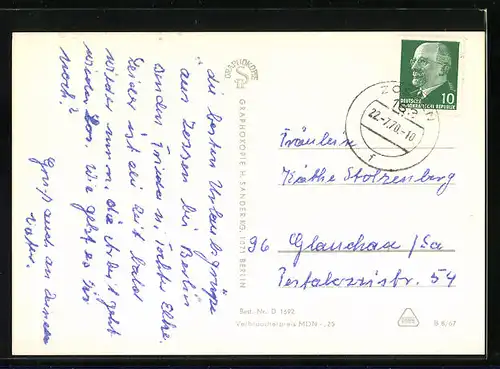 die besten Urlaubsgrüße
aus Zossen bei Berlin
senden Frieder u. Tochter Elke.
Leider ist die Zeit bald
wieder um, die Arbeit geht
wieder los. Wie geht es Dir
noch?
Gruß auch an Deinen
Vater.
GRAPHOKOPIE
GRAPHOKOPIE H. SANDER KG, 1071 BERLIN
10
DEUTSCHE
DEMOKRATISCHE REPUBLIK
22.-7.70.-10
f
Fräulein
Käthe Stolzenberg
96 Glauchau /Sa
Pestalozzistr. 54
Best.-Nr. D 1692
Verbraucherpreis MDN -,25
B 8/67